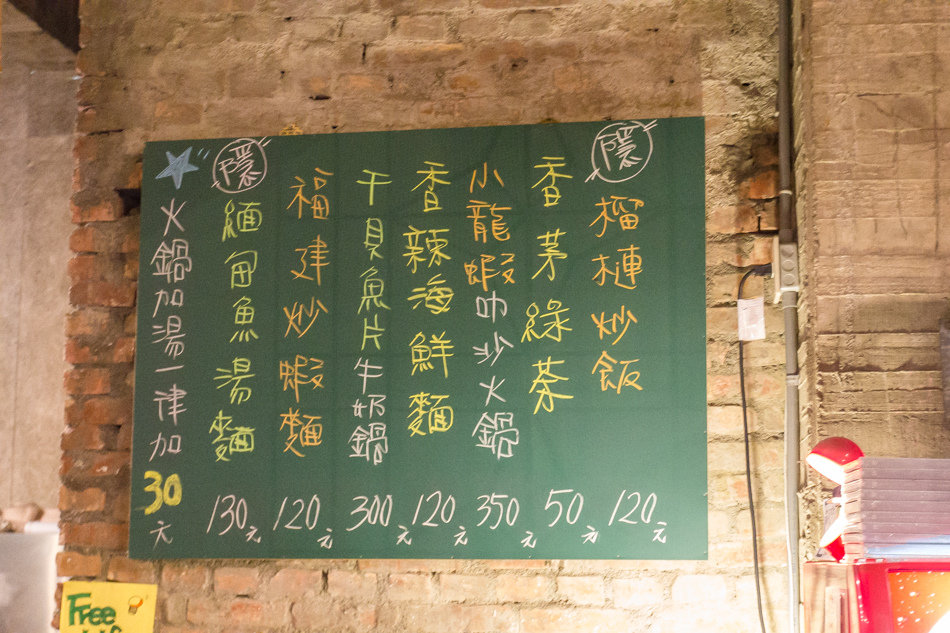 隱 榴槤炒飯 120元
香茅綠茶 50元
小龍蝦叻沙火鍋 350元
香辣海鮮麵 120元
干貝魚片牛奶鍋 300元
福建炒蝦麵 120元
隱 緬甸魚湯麵 130元
火鍋加湯一律加30元
Free